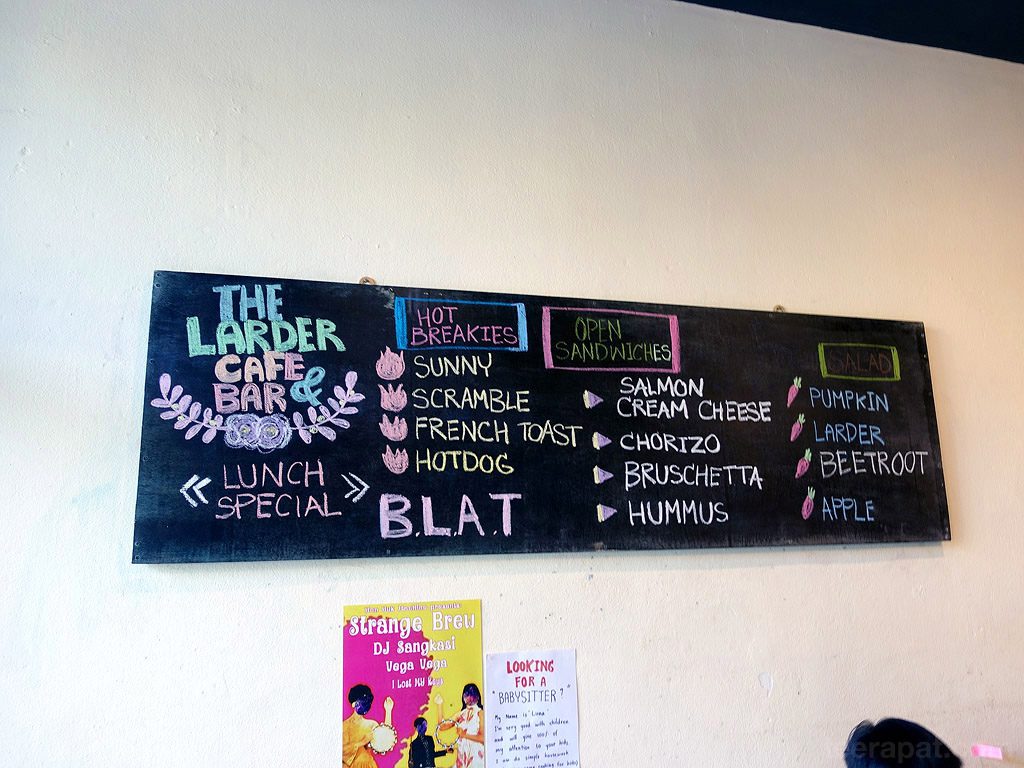 THE
LARDER
CAFE
&
BAR
<< LUNCH >>
SPECIAL
HOT
BREAKIES
SUNNY
SCRAMBLE
FRENCH TOAST
HOTDOG
B.L.A.T
OPEN
SANDWICHES
SALMON
CREAM CHEESE
CHORIZO
BRUSCHETTA
HUMMUS
SALAD
PUMPKIN
LARDER
BEETROOT
APPLE
presents
Strange Brew
DJ Sangkasi
Vega Vega
I Lost My Keys
LOOKING
FOR A
"BABYSITTER?"
My Name is "Linna"
I'm very good with children
and will give 100% of
my attention to your kids,
I can do simple housework
cooking for kids)